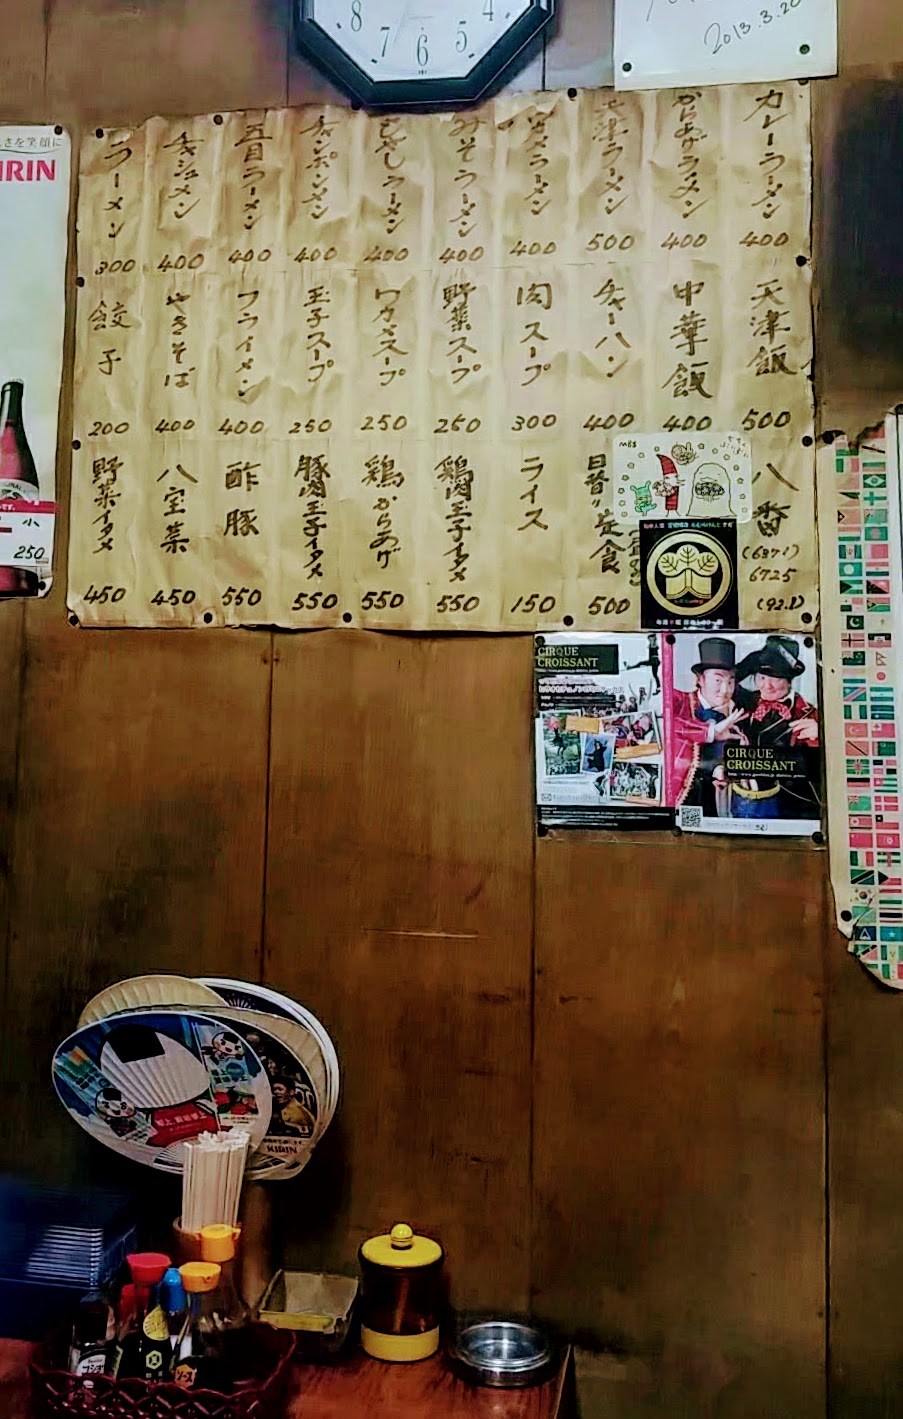 8 7 6 5 4
2013.3.20
さを笑顔に
KIRIN
小
250
カレーラーメン
400
からあげラーメン
400
天津ラーメン
500
ワカメラーメン
400
みそラーメン
400
もやしラーメン
400
チャンポンメン
400
五目ラーメン
400
チャシュメン
400
ラーメン
300
天津飯
500
中華飯
400
チャーハン
400
肉スープ
300
野菜スープ
250
ワカメスープ
250
玉子スープ
250
フライメン
400
やきそば
400
餃子
200
八番
(6871)
6725
日替り定食
500
ライス
150
鶏肉玉子イタメ
550
鶏からあげ
550
豚肉玉子イタメ
550
酢豚
550
八宝菜
450
野菜イタメ
450
MBS
CIRQUE
CROISSANT
CIRQUE
CROISSANT
KIRIN
ソース